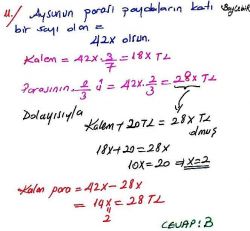 11./ Aysunun parası paydaların katı
bir sayı olan =
42x olsun.
Kalem = 42x . 3/7 = 18x TL
Parasının 2/3 ü = 42x . 2/3 = 28x TL
Dolayısıyla
Kalem + 20TL = 28x TL
olmuş
18x + 20 = 28x
10x = 20 ⇒ x = 2
Kalan para = 42x - 28x
= 14x = 28 TL
2
CEVAP: B